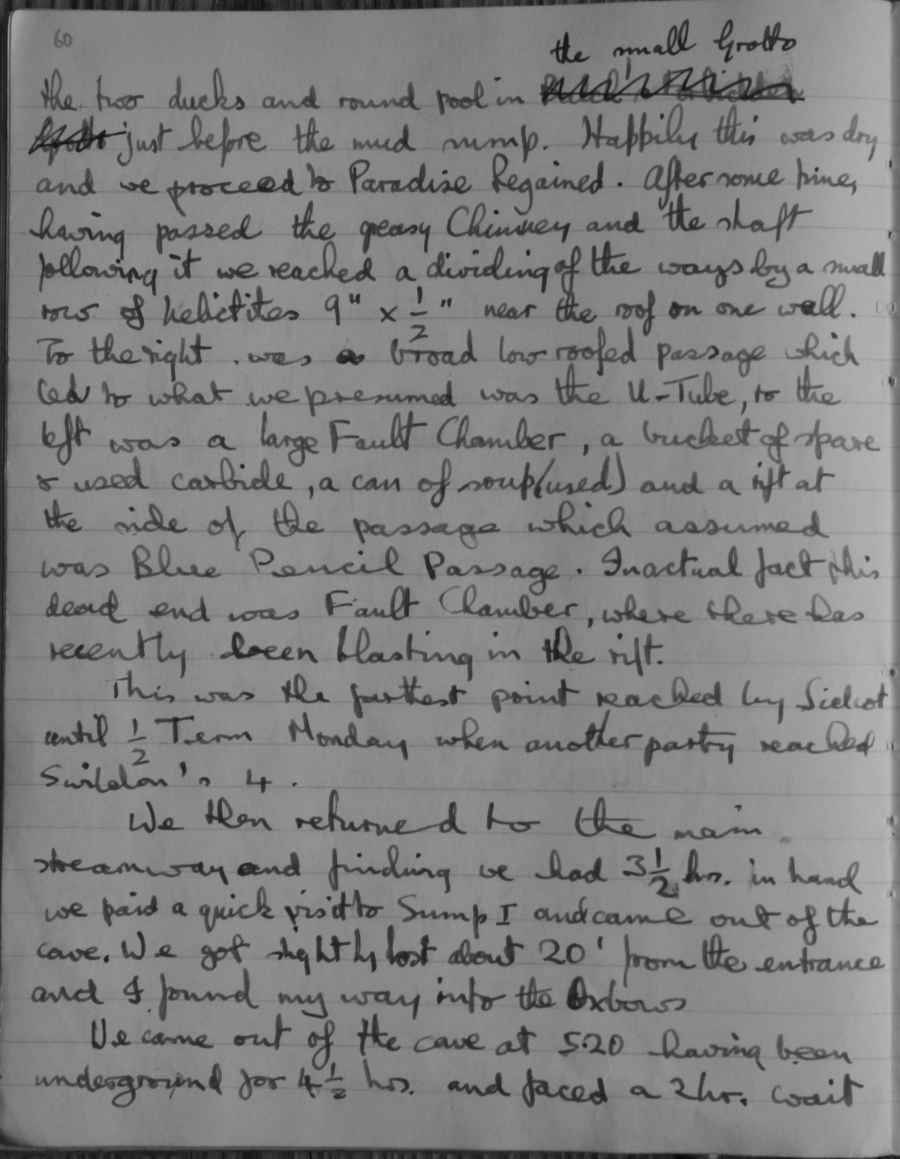 60
the small Grotto
the two ducks and round pool in
just before the mud sump. Happily this was dry
and we proceed to Paradise Regained. After some time,
having passed the greasy Chimney and the shaft
following it we reached a dividing of the ways by a small
row of helictites 9" x 1/2" near the roof on one wall.
To the right was a broad low roofed passage which
led to what we presumed was the U-Tube, to the
left was a large Fault Chamber, a bucket of spare
& used carbide, a can of soup (used) and a rift at
the side of the passage which assumed
was Blue Pencil Passage. In actual fact this
dead end was Fault Chamber, where there has
recently been blasting in the rift.
This was the furthest point reached by Sidcot
until 1/2 Term Monday when another party reached
Swildon's 4.
We then returned to the main
streamway and finding we had 3 1/2 hrs. in hand
we paid a quick visit to Sump I and came out of the
cave. We got slightly lost about 20' from the entrance
and I found my way into the Oxbows
We came out of the cave at 5.20 having been
underground for 4 1/2 hrs. and faced a 2hr. wait